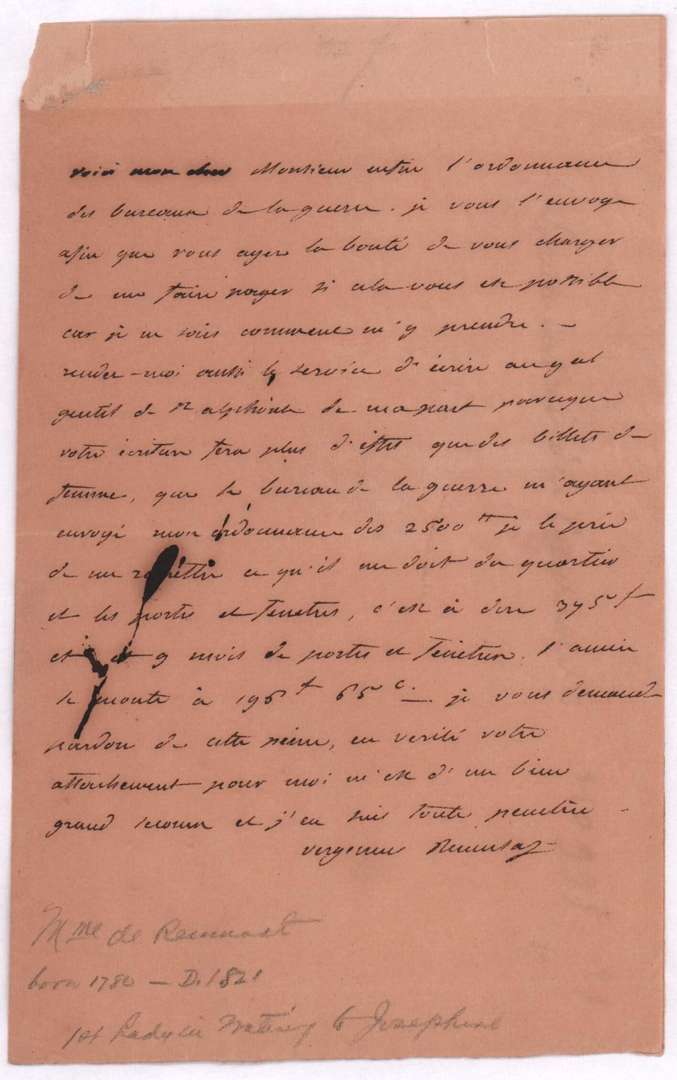 voici mon cher Monsieur enfin l'ordonnance
des bureaux de la guerre. je vous l'envoye
afin que vous ayez la bonté de vous charger
de me faire payer si cela vous est possible
car je ne sais comment m'y prendre. —
rendez-moi aussi le service d'écrire au g al
gentil de St alphonse de ma part parceque
votre écriture fera plus d'effet que des billets de
femme, que le bureau de la guerre m'ayant
envoyé mon ordonnance des 2500 tt je le prie
de me remettre ce qu'il me doit du quartier
et les portes et fenetres, c'est à dire 375 f
et 9 mois de portes et fenetres. l'année
se monte à 196 f 65 c. je vous demande
pardon de cette peine, en verité votre
attachement pour moi m'est d'un bien
grand secours et j'en suis toute penetrée
vergennes Remusat
Mme de Remusat
born 1780 — D. 1821
1st Lady in Waiting to Josephine